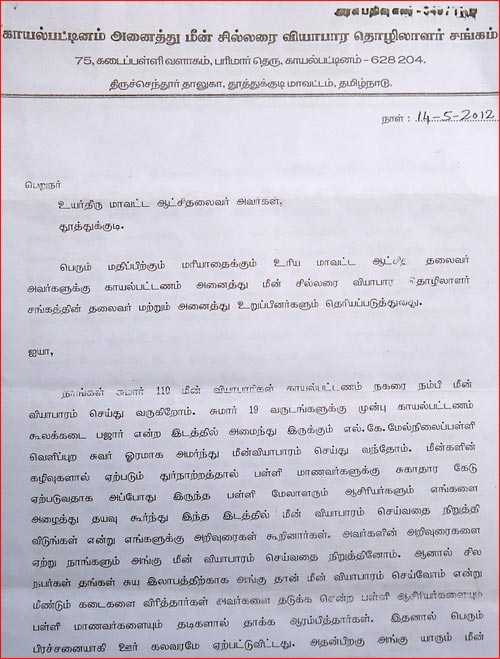 காயல்பட்டினம் அனைத்து மீன் சில்லரை வியாபார தொழிலாளர் சங்கம்
75, கடைப்பள்ளி வளாகம், பரிமார் தெரு, காயல்பட்டினம் - 628 204.
திருச்செந்தூர் தாலுகா, தூத்துக்குடி மாவட்டம், தமிழ்நாடு.
நாள் : 14-5-2012
பெறுநர்
உயர்திரு மாவட்ட ஆட்சிதலைவர் அவர்கள்,
தூத்துக்குடி.
பெரும் மதிப்பிற்கும் மரியாதைக்கும் உரிய மாவட்ட ஆட்சி தலைவர்
அவர்களுக்கு காயல்பட்டணம் அனைத்து மீன் சில்லரை வியாபார தொழிலாளர்
சங்கத்தின் தலைவர் மற்றும் அனைத்து உறுப்பினர்களும் தெரியப்படுத்துவது.
ஐயா,
நாங்கள் சுமார் 110 மீன் வியாபாரிகள் காயல்பட்டணம் நகரை நம்பி மீன்
வியாபாரம் செய்து வருகிறோம். சுமார் 19 வருடங்களுக்கு முன்பு காயல்பட்டணம்
கூலக்கடை பஜார் என்ற இடத்தில் அமைந்து இருக்கும் எல்.கே.மேல்நிலைப்பள்ளி
வெளிப்புற சுவர் ஓரமாக அமர்ந்து மீன்வியாபாரம் செய்து வந்தோம். மீன்களின்
கழிவுகளால் ஏற்படும் துர்நாற்றத்தால் பள்ளி மாணவர்களுக்கு சுகாதார கேடு
ஏற்படுவதாக அப்போது இருந்த பள்ளி மேலாளரும் ஆசிரியர்களும் எங்களை
அழைத்து தயவு கூர்ந்து இந்த இடத்தில் மீன் வியாபாரம் செய்வதை நிறுத்தி
விடுங்கள் என்று எங்களுக்கு அறிவுரைகள் கூறினார்கள். அவர்களின் அறிவுரைகளை
ஏற்று நாங்களும் அங்கு மீன் வியாபாரம் செய்வதை நிறுத்தினோம். ஆனால் சில
நபர்கள் தங்கள் சுய இலாபத்திற்காக அங்கு தான் மீன் வியாபாரம் செய்வோம் என்று
மீண்டும் கடைகளை விரித்தார்கள் அவர்களை தடுக்க சென்ற பள்ளி ஆசிரியர்களையும்
பள்ளி மாணவர்களையும் தடிகளால் தாக்க ஆரம்பித்தார்கள். இதனால் பெரும்
பிரச்சனையாகி ஊர் கலவரமே ஏற்பட்டுவிட்டது. அதன்பிறகு அங்கு யாரும் மீன்